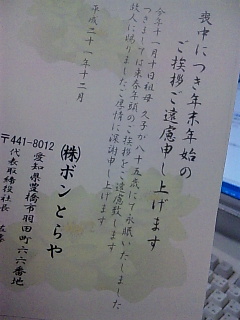 喪中につき年末年始の
ご挨拶ご遠慮申し上げます
今年十一月十日祖母 久子が八十五歳にて永眠いたしました
つきましては来春年頭のご挨拶をご遠慮致します
故人に賜りましたご厚情に深謝申し上げます
平成二十一年十二月
㈱ボンとらや
〒441-8012
愛知県豊橋市羽田町六六番地
代表取締役社長